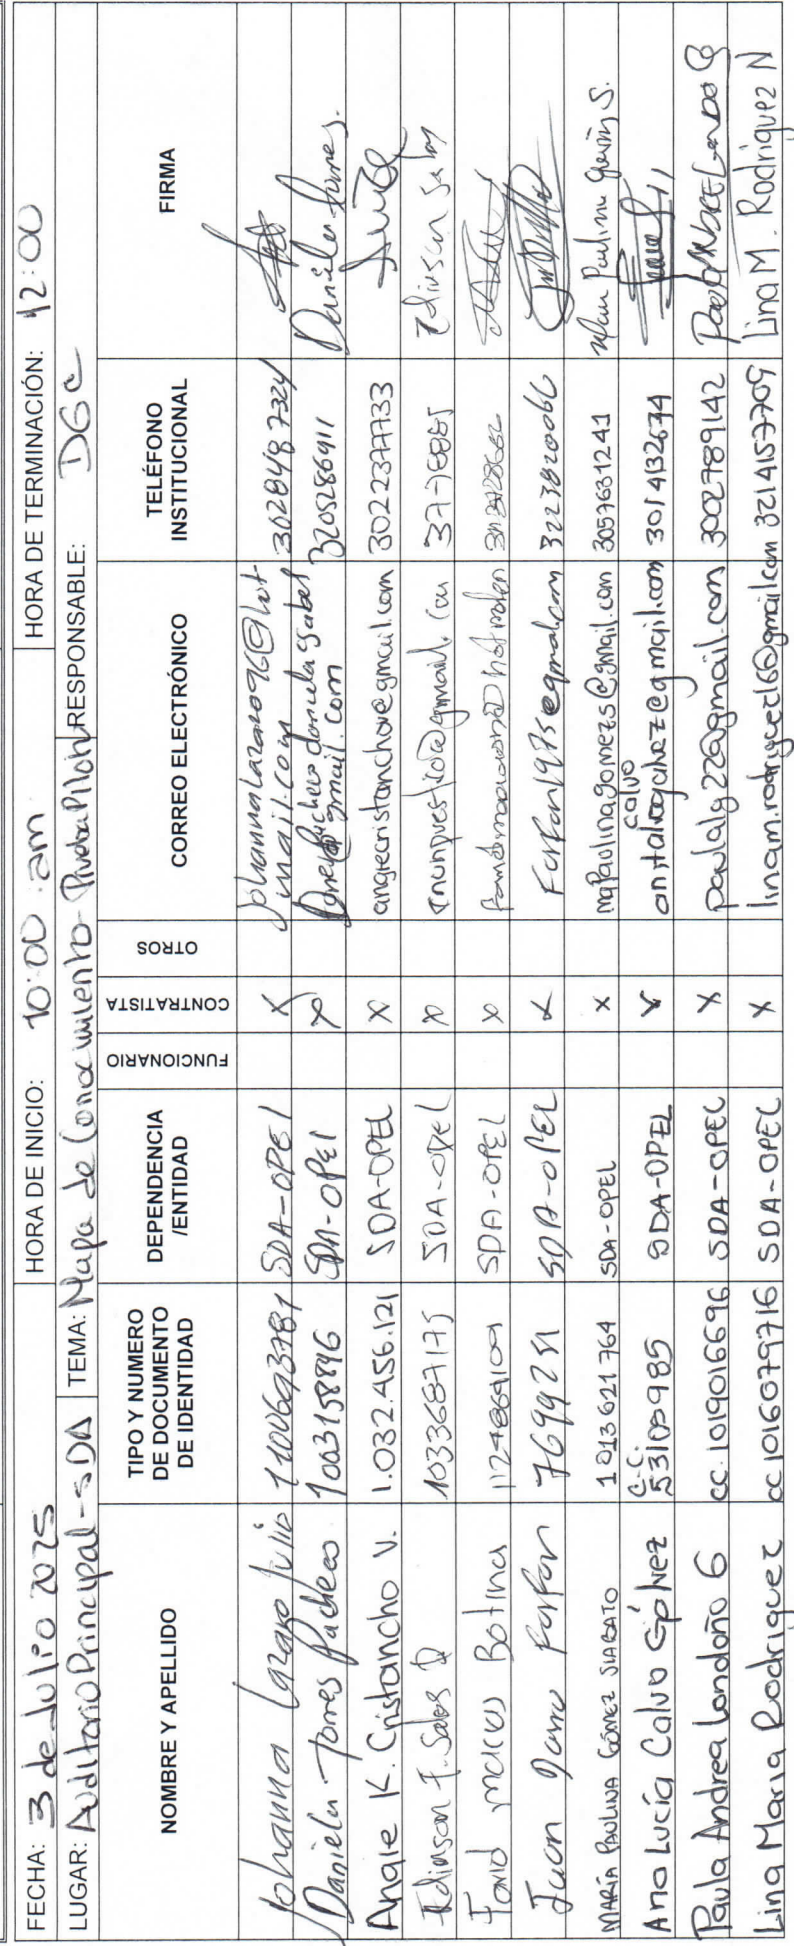 FECHA: 3 de Julio 2025 HORA DE INICIO: 10:00 am HORA DE TERMINACIÓN: 12:00
LUGAR: Auditorio Principal - SDA TEMA: Mapa de Conocimiento - Prueba Piloto RESPONSABLE: DGC
NOMBRE Y APELLIDO TIPO Y NUMERO DE DOCUMENTO DE IDENTIDAD DEPENDENCIA /ENTIDAD FUNCIONARIO CONTRATISTA OTROS CORREO ELECTRÓNICO TELÉFONO INSTITUCIONAL FIRMA
Johanna Lazaro Julio 1100693781 SDA-OPEL X johannalazaro96@hotmail.com 3028487324
Daniela Torres Pacheco 1003158896 SDA-OPEL X gmail.com 3205286911 Daniela Torres.
Angie K. Cristancho V. 1.032.456.121 SDA-OPEL X angiecristancho@gmail.com 3022377733
Edinson F. Salas D 1033687175 SDA-OPEL X 3778885 Edinson Salas
Botina SDA-OPEL X
Juan Farfan 7699251 SDA-OPEL X Farfan1975@gmail.com 3223820066
MARÍA PAULINA GÓMEZ SIABATO 1013621764 SDA-OPEL X mapaulinagomezs@gmail.com 3057631241 Paulina Gómez S.
Ana Lucía Calvo Gálvez C.C. 53109985 SDA-OPEL X calvo 3014132674
Paula Andrea Londoño G cc. 1019016696 SDA-OPEL X paulalg226@gmail.com 3002789142
Lina Maria Rodriguez cc 1016079716 SDA-OPEL X linam.rodriguez16@gmail.com 3214157709 Lina M. Rodriguez N